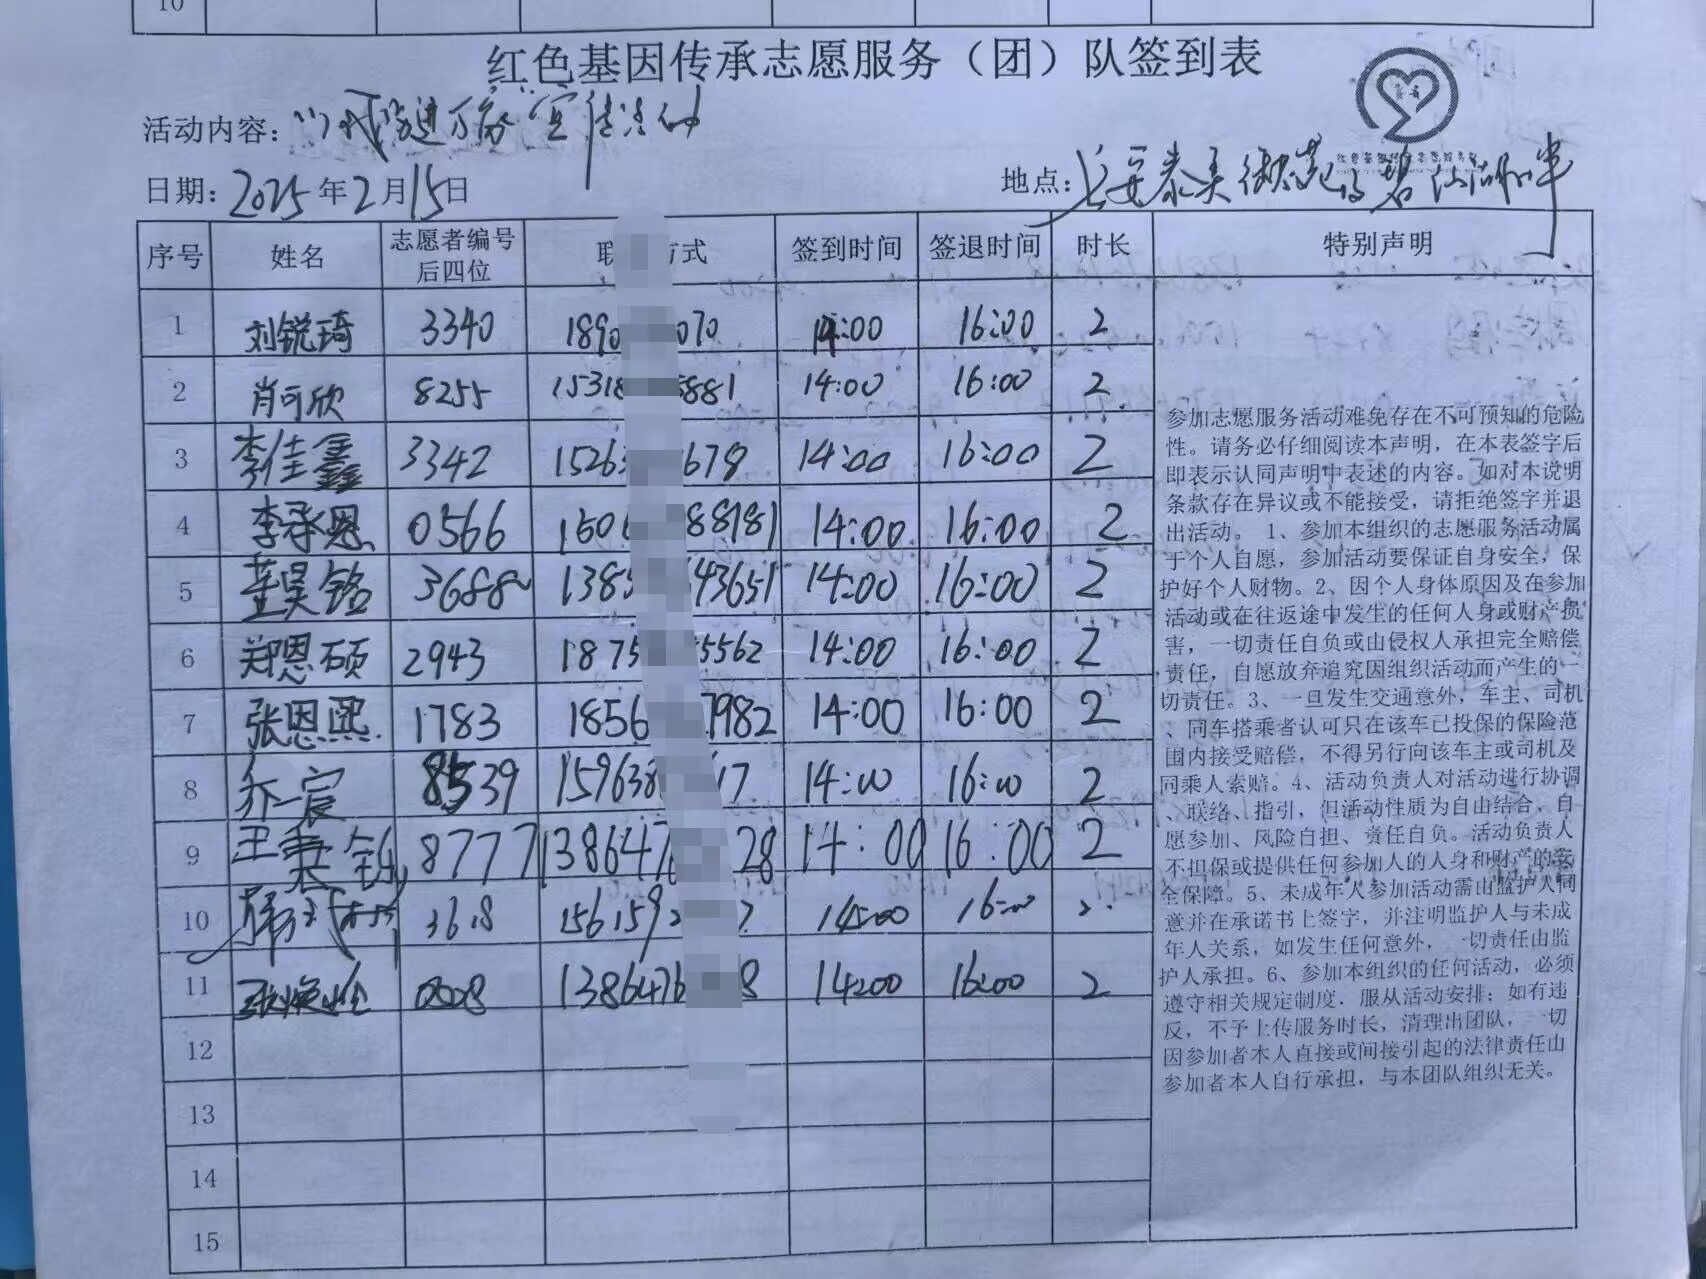 10
红色基因传承志愿服务（团）队签到表
活动内容：进万家宣传活动
日期：2025年2月15日
地点：长安泰美
序号 姓名 志愿者编号后四位 联 方式 签到时间 签退时间 时长 特别声明
1 刘锐琦 3340 1890 070 14:00 16:00 2
2 肖可欣 8255 15318 5881 14:00 16:00 2
3 李佳鑫 3342 1526 1678 14:00 16:00 2
4 李承恩 0566 1506 88181 14:00 16:00 2
5 董昊铭 3688 1385 43651 14:00 16:00 2
6 郑恩硕 2943 1875 5562 14:00 16:00 2
7 张恩熙 1783 1856 7982 14:00 16:00 2
8 乔一宸 8539 159638 17 14:00 16:00 2
9 王 8777 138647 28 14:00 16:00 2
10 3618 156159 14:00 16:00 2
11 张焕 0808 1386476 8 14:00 16:00 2
12
13
14
15
参加志愿服务活动难免存在不可预知的危险
性。请务必仔细阅读本声明，在本表签字后
即表示认同声明中表述的内容。如对本说明
条款存在异议或不能接受，请拒绝签字并退
出活动。 1、参加本组织的志愿服务活动属
于个人自愿，参加活动要保证自身安全，保
护好个人财物。2、因个人身体原因及在参加
活动或在往返途中发生的任何人身或财产损
害，一切责任自负或由侵权人承担完全赔偿
责任，自愿放弃追究因组织活动而产生的一
切责任。3、一旦发生交通意外，车主、司机
、同车搭乘者认可只在该车已投保的保险范
围内接受赔偿，不得另行向该车主或司机及
同乘人索赔。4、活动负责人对活动进行协调
、联络、指引，但活动性质为自由结合，自
愿参加、风险自担、责任自负。活动负责人
不担保或提供任何参加人的人身和财产的安
全保障。5、未成年人参加活动需由监护人同
意并在承诺书上签字，并注明监护人与未成
年人关系，如发生任何意外，一切责任由监
护人承担。6、参加本组织的任何活动，必须
遵守相关规定制度，服从活动安排；如有违
反，不予上传服务时长，清理出团队，一切
因参加者本人直接或间接引起的法律责任由
参加者本人自行承担，与本团队组织无关。